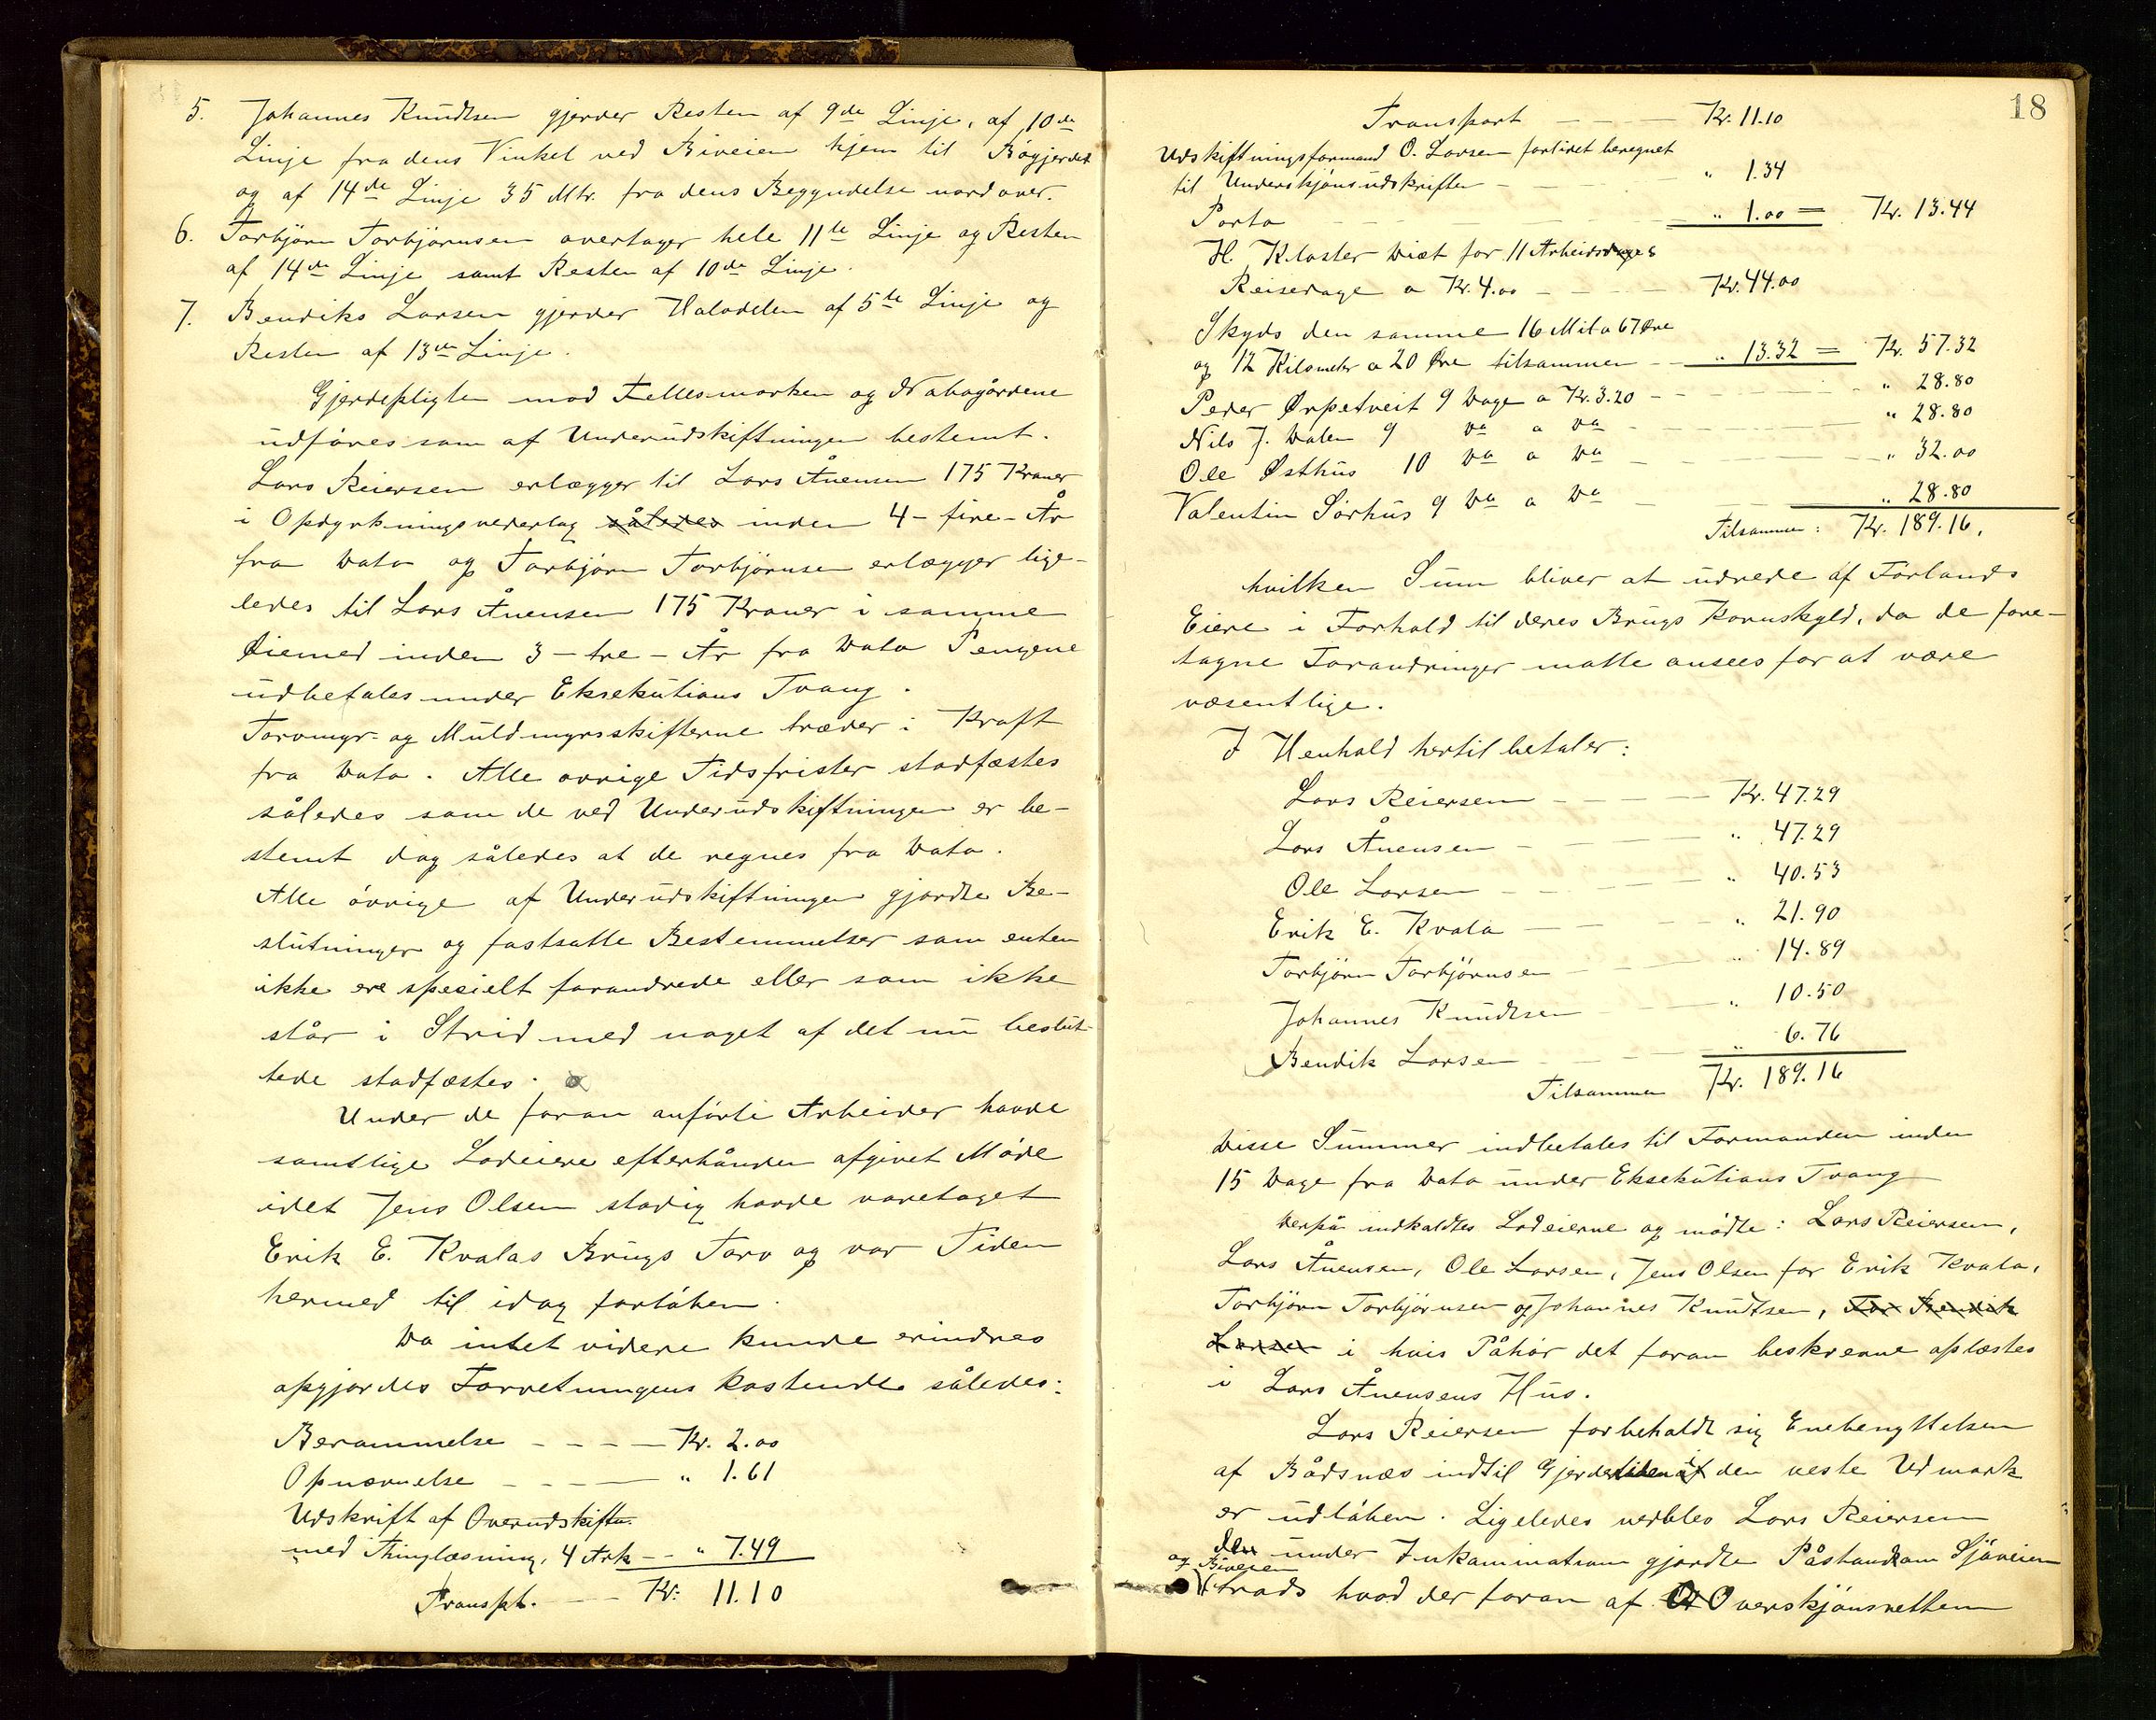 5. Johannes Knudtsen gjerder Resten af 9de Linje, af 10de
Linje fra dens Vinkel ved Biveien hjem til Bögjerdet
og af 14de Linje 35 Mtr. fra dens Begyndelse nordover.
6. Torbjörn Torbjörnsen overtager hele 11te Linje og Resten
af 14de Linje samt Resten af 10de Linje.
7. Bendiks Larsen gjerder Halvdelen af 5te Linje og
Resten af 13de Linje.
Gjerdepligten mod Fellesmarken og Nabogårdene
udföres som af Underudskiftningen bestemt.
Lars Reiersen erlægger til Lars Ånensen 175 Kroner
i Opdyrkningsvederlag således inden 4 - fire - År
fra Dato og Torbjörn Torbjörnsen erlægger lige-
ledes til Lars Ånensen 175 Kroner i samme
Øiemed inden 3 - tre - År fra Dato Pengene
udbetales under Eksekutions Tvang.
Torvmyr- og Muldmyrsskifterne træder i Kraft
fra Dato. Alle övrige Tidsfrister stadfæstes
således som de ved Underudskiftningen er be-
stemt dog således at de regnes fra Dato.
Alle övrige af Underudskiftningen gjordte Be-
slutninger og fastsatte Bestemmelser som enten
ikke ere specielt forandrede eller som ikke
står i Strid med noget af det nu beslut-
tede stadfæstes.
Under de foran anförte Arbeider havde
samtlige Lodeiere efterhånden afgivet Möde
idet Jens Olsen stadig havde varetaget
Erik E. Kvalas Brugs Tarv og var Tiden
hermed til idag forlöben.
Da intet videre kunde erindres
opgjordes Forretningens Kostende således:
Berammelse - - - - Kr. 2.00
Opnævnelse - - - - " 1.61
Udskrift af Overudskiftn.
med Thinglæsning, 4 Ark - - " 7.49
Transpt. - - - Kr. 11.10
18
Transport - - - - Kr. 11.10
Udskiftningsformand O. Larsen forlivet beregnet
til Underskjönsudskriften - - - " 1.34
Porto - - - " 1.00 = Kr. 13.44
H. Kloster Diæt for 11 Arbeidsdage &
Reisedage a Kr. 4.00 - - - Kr. 44.00
Skyds den samme 16 Mil a 67 Øre
og 12 Kilometer a 20 Øre tilsammen - - " 13.32 = Kr. 57.32
Peder Ørpetveit 9 Dage a Kr. 3.20 - - - " 28.80
Nils J. Dalen 9 Do a Do - - - " 28.80
Ole Østhus 10 Do a Do - - - " 32.00
Valentin Sörhus 9 Do a Do - - - " 28.80
Tilsammen: Kr. 189.16.
hvilken Sum bliver at udrede af Förlands
Eiere i Forhold til deres Brugs Kornskyld, da de fore-
tagne Forandringer matte ansees for at være
væsentlige.
I Henhold hertil betaler:
Lars Reiersen - - - Kr. 47.29
Lars Ånensen - - - " 47.29
Ole Larsen - - - " 40.53
Erik E. Kvala - - - " 21.90
Torbjörn Torbjörnsen - - - " 14.89
Johannes Knudtsen - - - " 10.50
Bendik Larsen - - - " 6.76
Tilsammen Kr. 189.16
Disse Summer indbetales til Formanden inden
15 Dage fra Dato under Eksekutions Tvang
Derpå indkaldtes Lodeierne og mödte: Lars Reiersen,
Lars Ånensen, Ole Larsen, Jens Olsen for Erik Kvala,
Torbjörn Torbjörnsen og Johannes Knudtsen, For Bendik
Larsen i hvis Påhör det foran beskrevne oplæstes
i Lars Ånensens Hus.
Lars Reiersen forbeholdt sig Enebenyttelsen
af Bådsnæs indtil Gjerdetiden af den neste Udmark
er udlöben. Ligeledes vedblev Lars Reiersen
den under Inkamination gjordte Påstand om Sjöveien
og Biveien
trods hvad der foran af Overskjönsretten